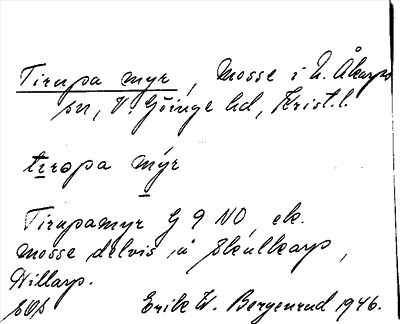 Tirupa myr, Mosse i N. Åkarps
sn, V. Göinge hd, Krist. l.
tiropa mýr
Tirupamyr G 9 NO, ek.
mosse delvis å Skulkarp,
Willarp.
SOS Erik W. Bergenrud 1946.